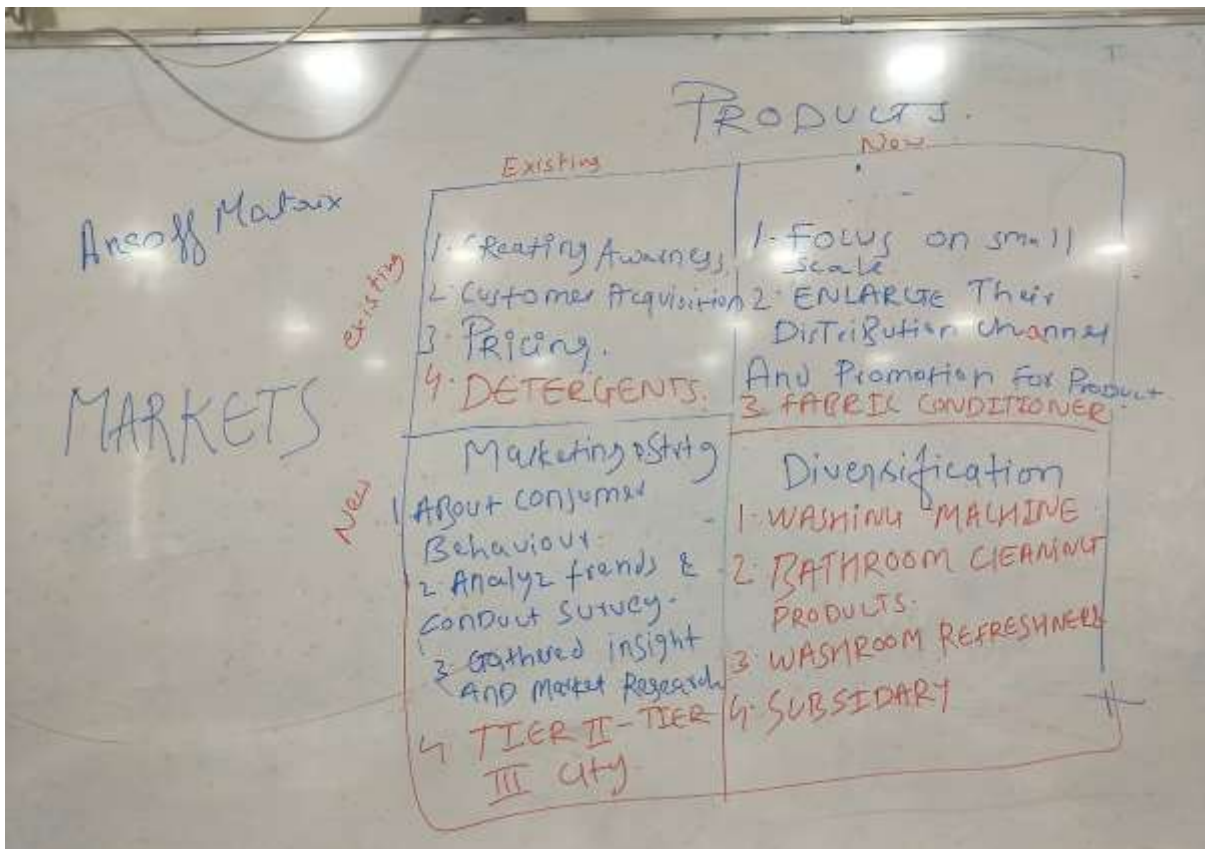 PRODUCTS.
Existing
New
Ansoff Matrix
existing
1. Creating Awarness
2. Customer Acquisition
3. Pricing.
4. DETERGENTS.
1. Focus on small
scale
2. ENLARGE Their
DisTriBution Channel
And Promotion For Product
3. FABRIC CONDITIONER.
MARKETS
New
Marketing
1 ABout consumer
Behaviour.
2 Analyz trends &
conDuct survey.
3 Gathered insight
AND Market Research
4 TIER II - TIER
III City.
Diversification
1. WASHING MACHINE
2. BATHROOM CLEANING
PRODUCTS.
3 WASHROOM REFRESHNERS
4. SUBSIDARY